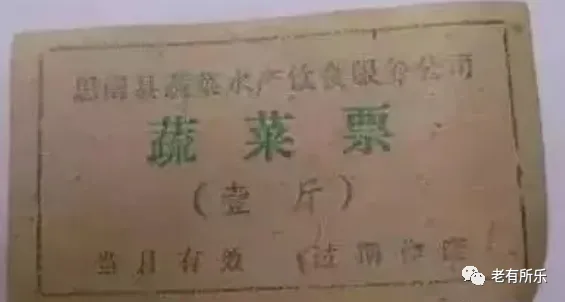 思南县蔬菜水产饮食服务公司
蔬菜票
(壹斤)
当月有效 (过期作废)
老有所乐